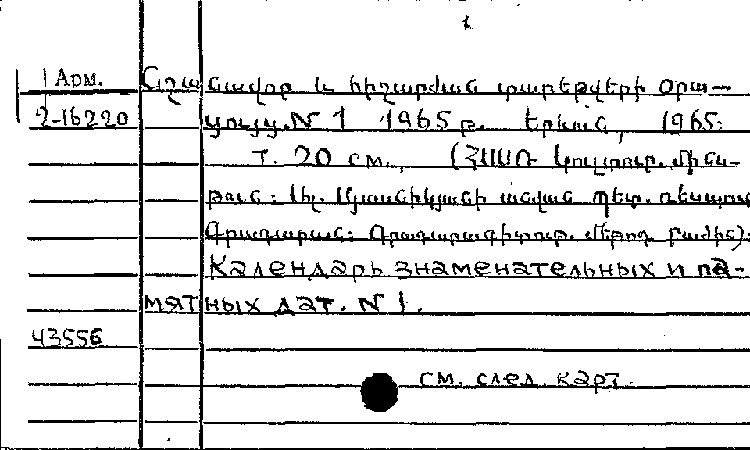 1
Арм. Նշանավոր և հիշարժան տարեթվերի օրա-
2-16220 ցույց. N 1 1965 թ. Երևան, 1965.
т. 20 см., (ՀՍՍՌ կուլտուր. մինս-
թար: Ա. Մյասնիկյանի անվան պետ. ռեսպուբ
Գրադարան: Գրադարանագիտութ. մեթոդ. բաժին):
Календарь знаменательных и па-
мятных дат. N 1.
43556
см. след. карт.